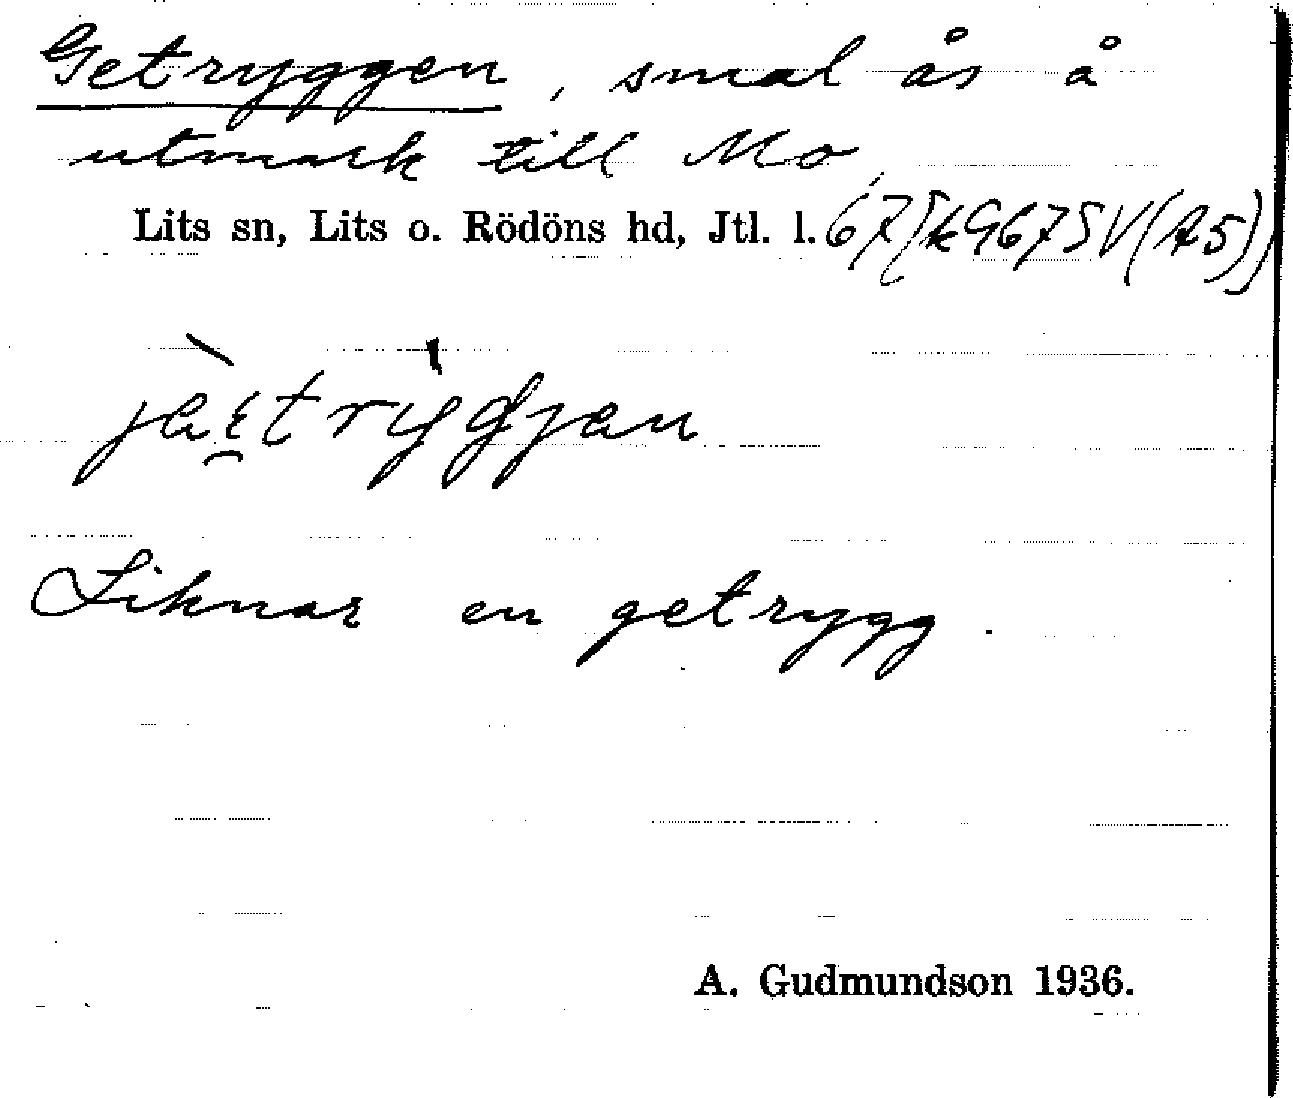 Getryggen, smal ås å
utmark till Mo,
Lits sn, Lits o. Rödöns hd, Jtl. l.
Liknar en getrygg.
A. Gudmundson 1936.